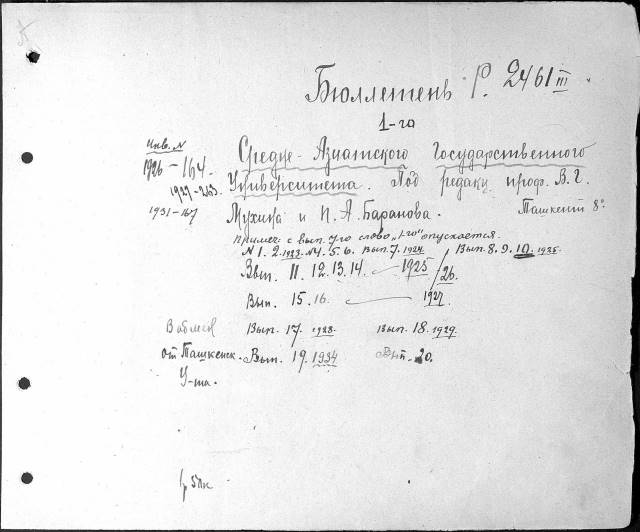 Бюллетень Р. 2461 III
1-го
Инв. N
1926 - 164.
1927-263.
1931-167
Средне-Азиатского Государственного
Университета. Под редакц проф. В. Г.
Мухина и П. А. Баранова. Ташкент 8°
Примеч: с вып. 7-го слово „1-го" опускается.
N 1. 2. 1923. N4. 5. 6. Вып. 7. 1924. Вып. 8. 9. 10. 1925.
Вып. 11. 12. 13. 14. — 1925/26.
Вып. 15. 16. — 1927.
В обмен Вып. 17. 1928. Вып. 18. 1929.
от Ташкенск. Вып. 19. 1934 Вып. 20.
У-та.